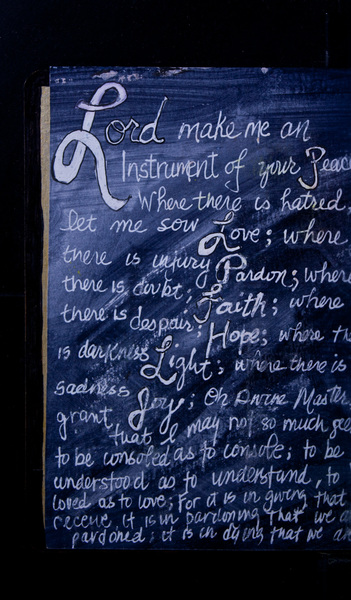 Lord make me an
Instrument of your Peac
Where there is hatred,
let me sow Love; where
there is injury Pardon; where
there is doubt; Faith; where
there is despair; Hope; where th
is darkness Light; where there is
sadness Joy; Oh Divine Master,
grant that I may not so much see
to be consoled as to console; to be
understood as to understand, to
loved as to love; For it is in giving that
receive, it is in pardoning that we a
pardoned; it is in dying that we are